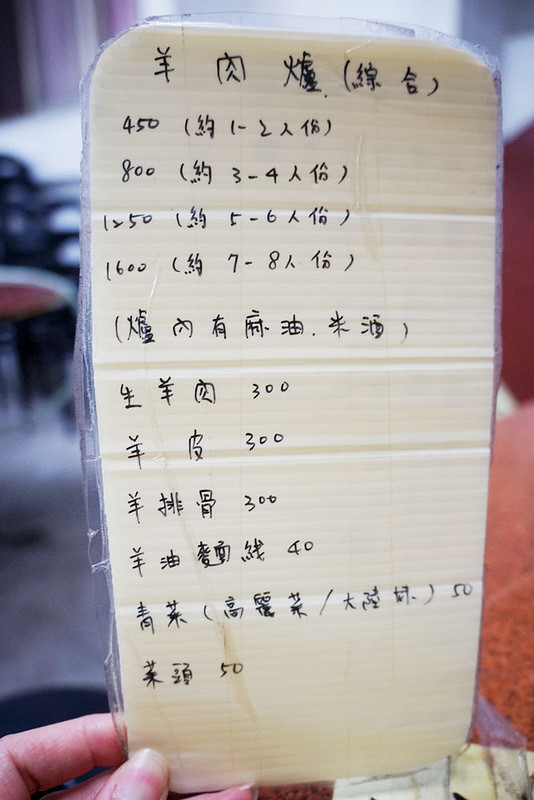 羊肉爐(綜合)
450(約1-2人份)
800(約3-4人份)
1250(約5-6人份)
1600(約7-8人份)
(爐內有麻油.米酒)
生羊肉 300
羊皮 300
羊排骨 300
羊油麵線 40
青菜(高麗菜/大陸妹)50
菜頭 50